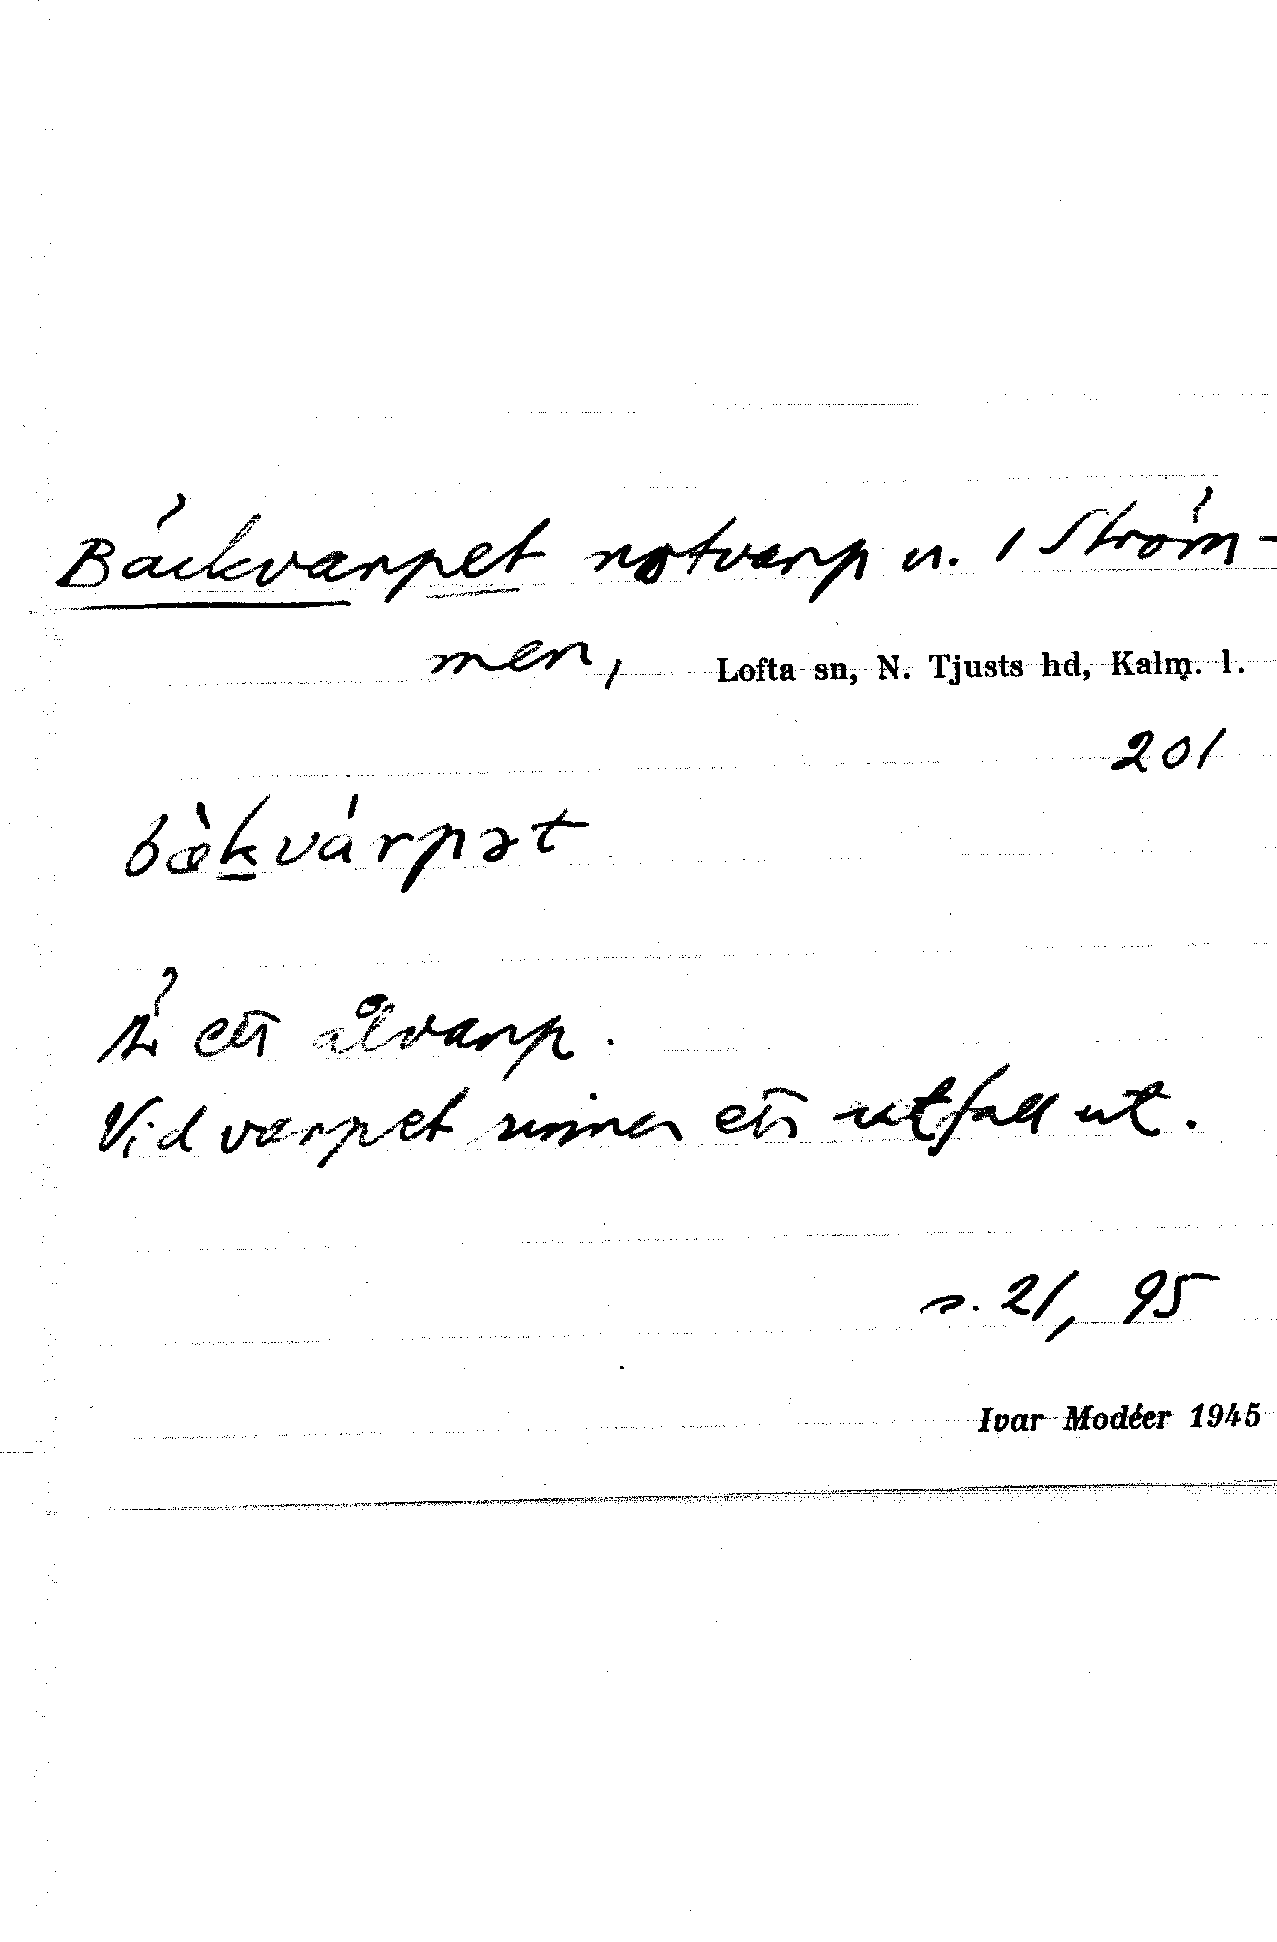 Bäckvarpet notvarp n. i Ström-
men, Lofta sn, N. Tjusts hd, Kalm. l.
201
bæ̀kvárpət
Är ett ålvarp.
Vid varpet rinner ett utfall ut.
s. 21, 95
Ivar Modéer 1945